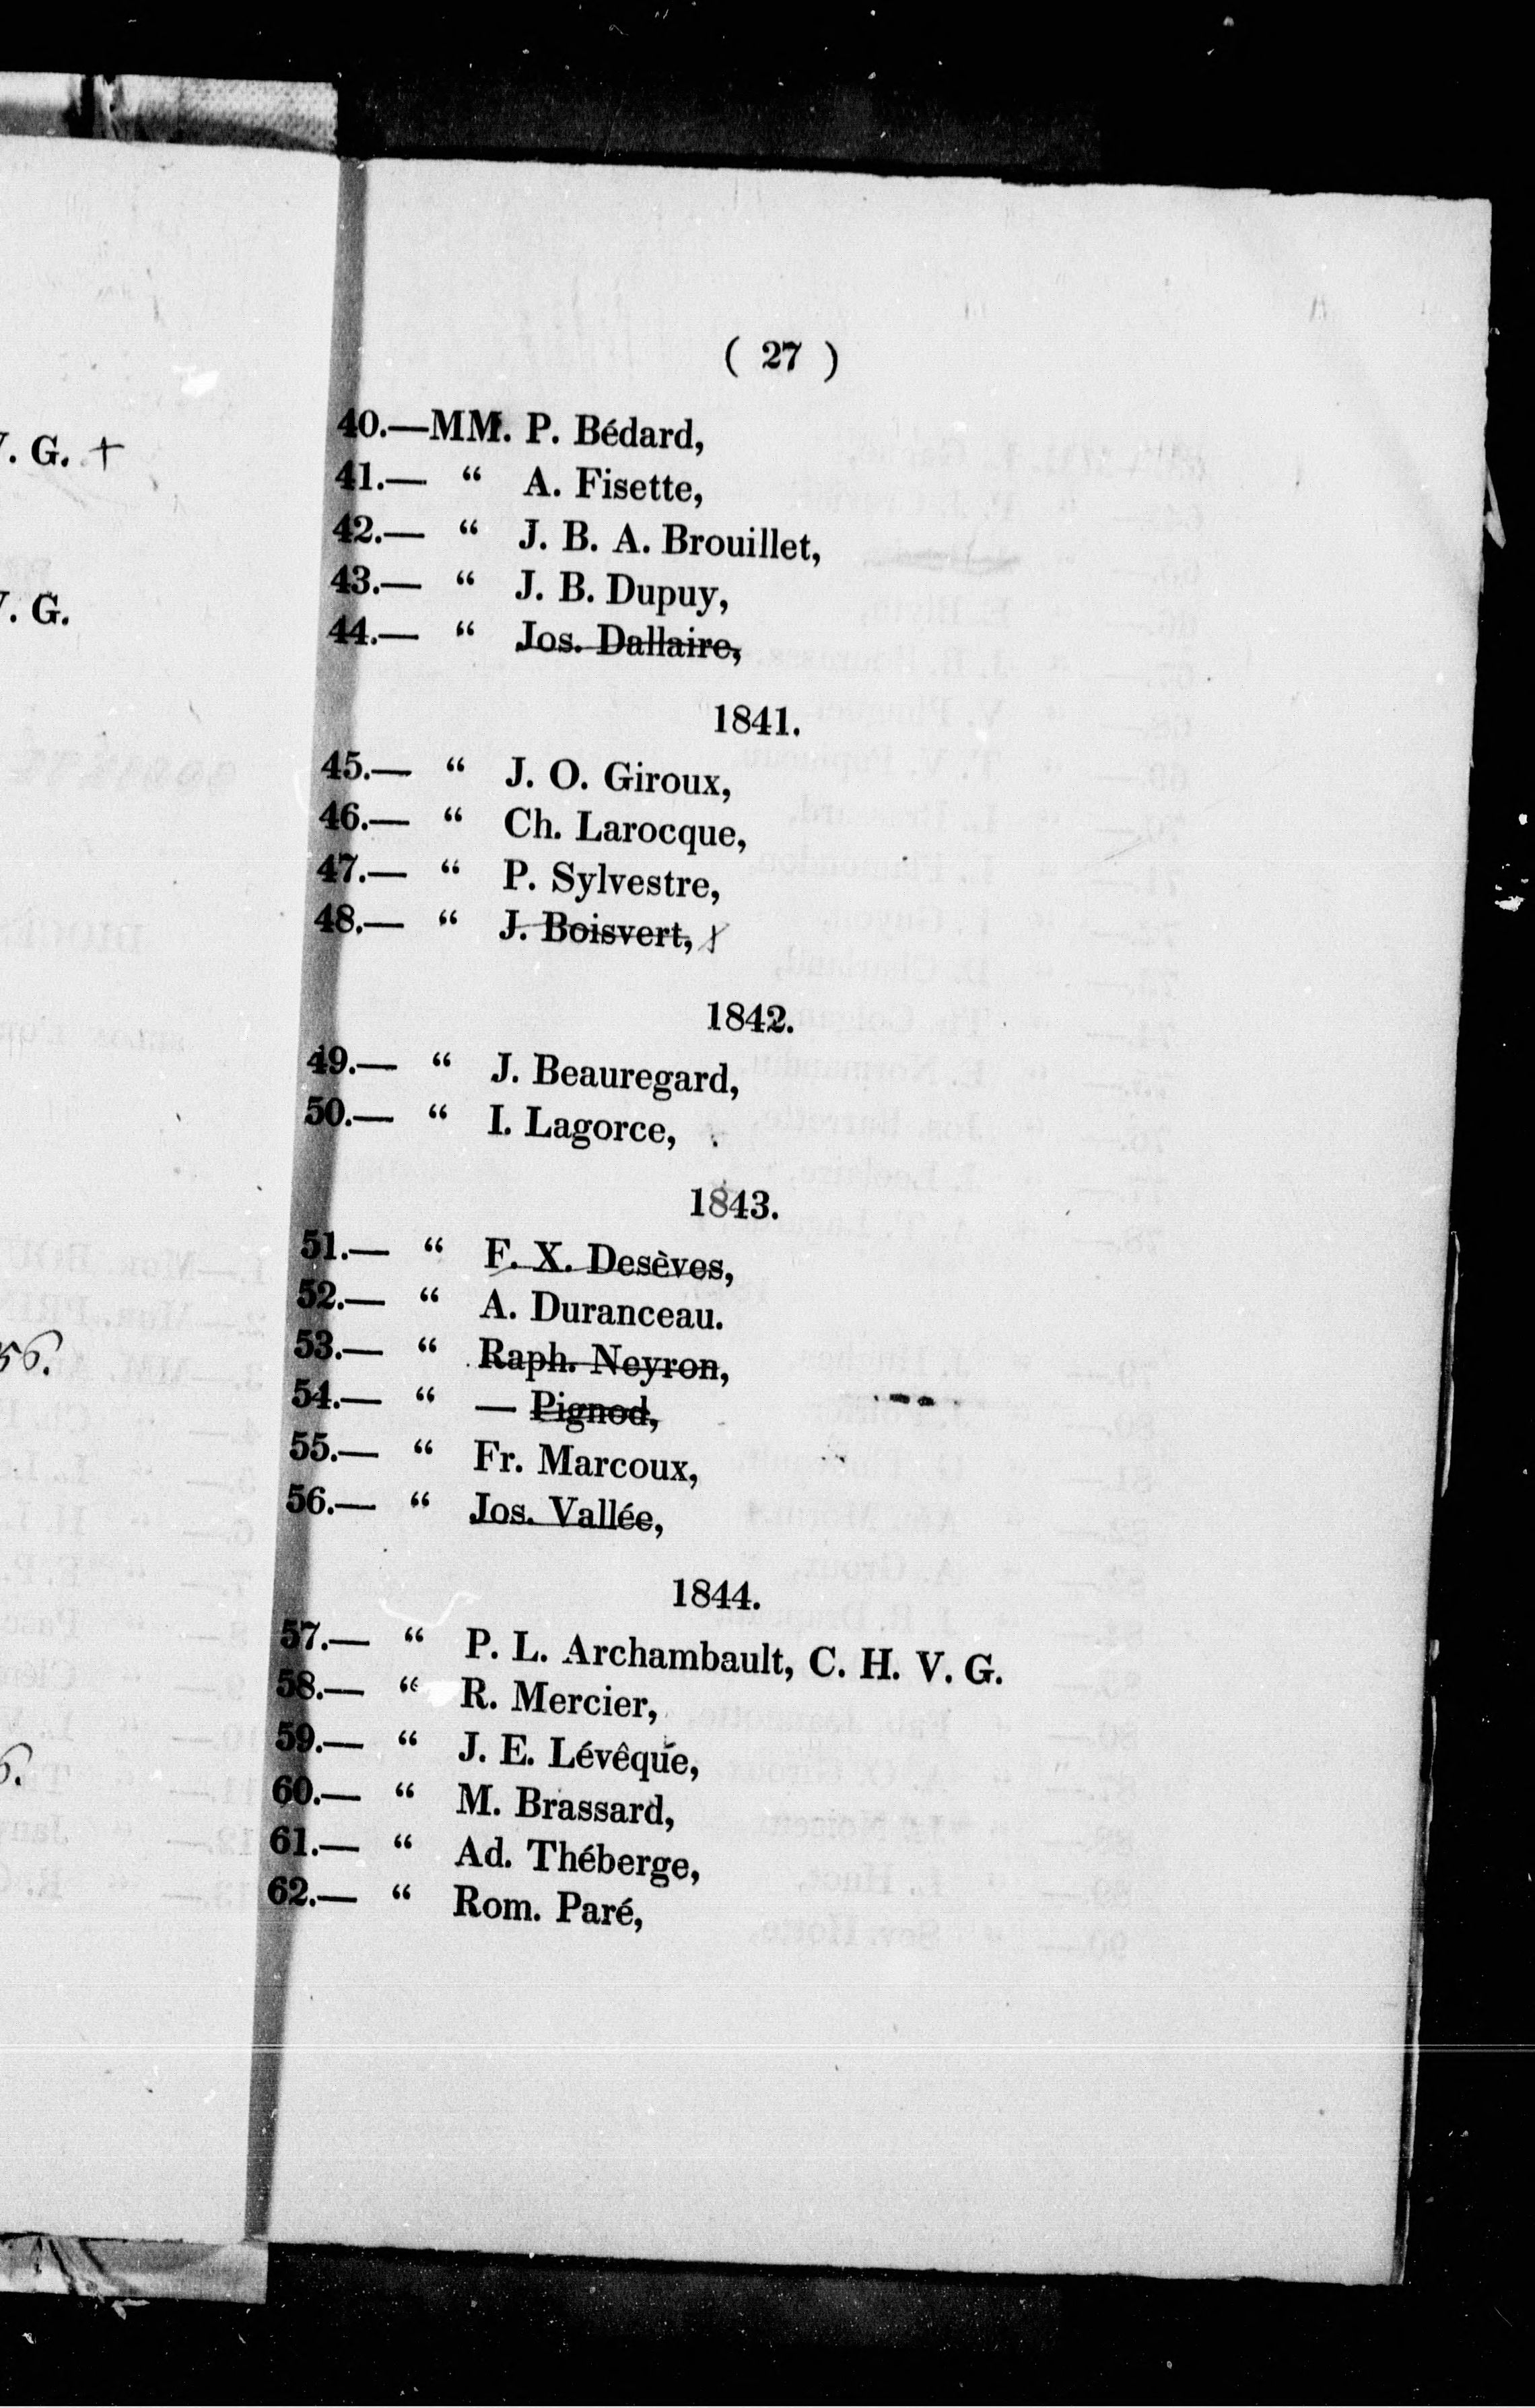 V. G. +
V. G.
56.
6.
( 27 )
40.—MM. P. Bédard,
41.— “ A. Fisette,
42.— “ J. B. A. Brouillet,
43.— “ J. B. Dupuy,
44.— “ Jos. Dallaire,
1841.
45.— “ J. O. Giroux,
46.— “ Ch. Larocque,
47.— “ P. Sylvestre,
48.— “ J. Boisvert, +
1842.
49.— “ J. Beauregard,
50.— “ I. Lagorce,
1843.
51.— “ F. X. Desèves,
52.— “ A. Duranceau.
53.— “ Raph. Neyron,
54.— “ — Pignod,
55.— “ Fr. Marcoux,
56.— “ Jos. Vallée,
1844.
57.— “ P. L. Archambault, C. H. V. G.
58.— “ R. Mercier,
59.— “ J. E. Lévêque,
60.— “ M. Brassard,
61.— “ Ad. Théberge,
62.— “ Rom. Paré,